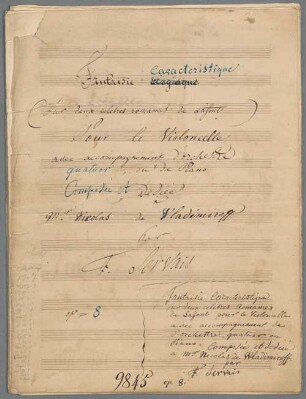 Caractéristique
Fantaisie Elegiaque
(Sur deux célèbres romances de Lafont)
Pour le Violoncelle
avec accompagnement d'orchestre
quatuor, ou de Piano
Composée et Dédiée
à
Mr Nicolas de Wladimiroff
par
F. Servais
op = 8
Fantaisie Caractéristique
Sur deux célèbres Romances
de Lafont pour le Violoncelle
avec accompagnement de
orchestre quatuor ou
Piano. Composée et dediée
à Mr Nicolas de Wladimiroff
par
F. Servais
9845
op 8.